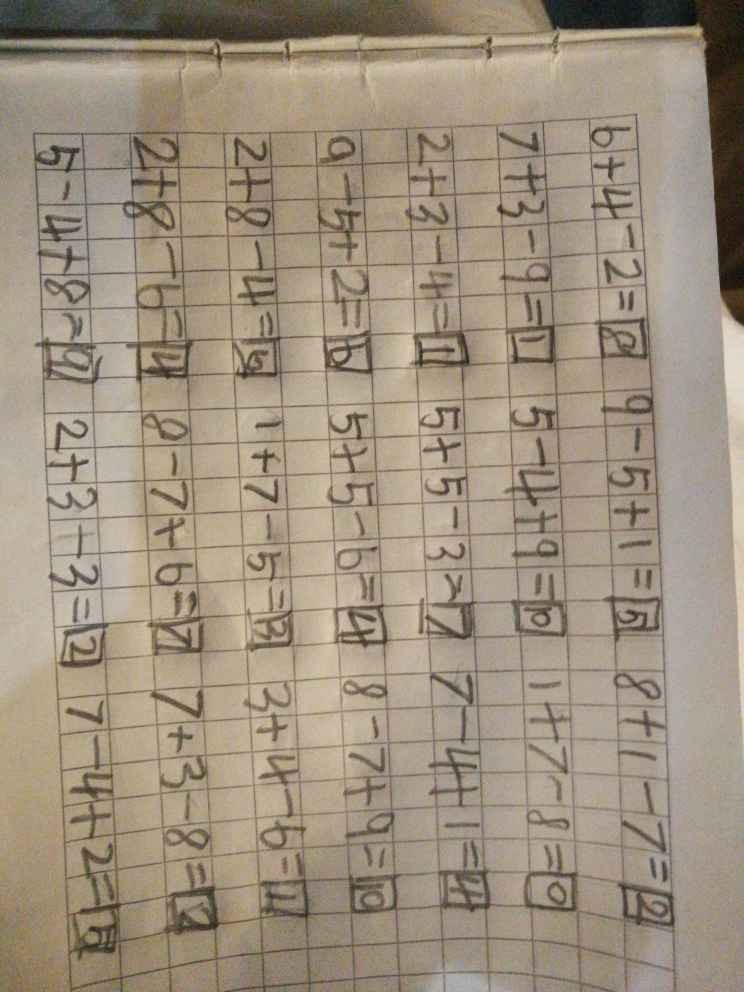 6+4-2=8 9-5+1=5 8+1-7=2
7+3-9=1 5-4+9=10 1+7-8=0
2+3-4=1 5+5-3=7 7-4+1=4
9-5+2=6 5+5-6=4 8-7+9=10
2+8-4= 1+7-5=3 3+4-6=1
2+8-6=4 8-7+6=7 7+3-8=2
5-4+8=9 2+3-3=2 7-4+2=5